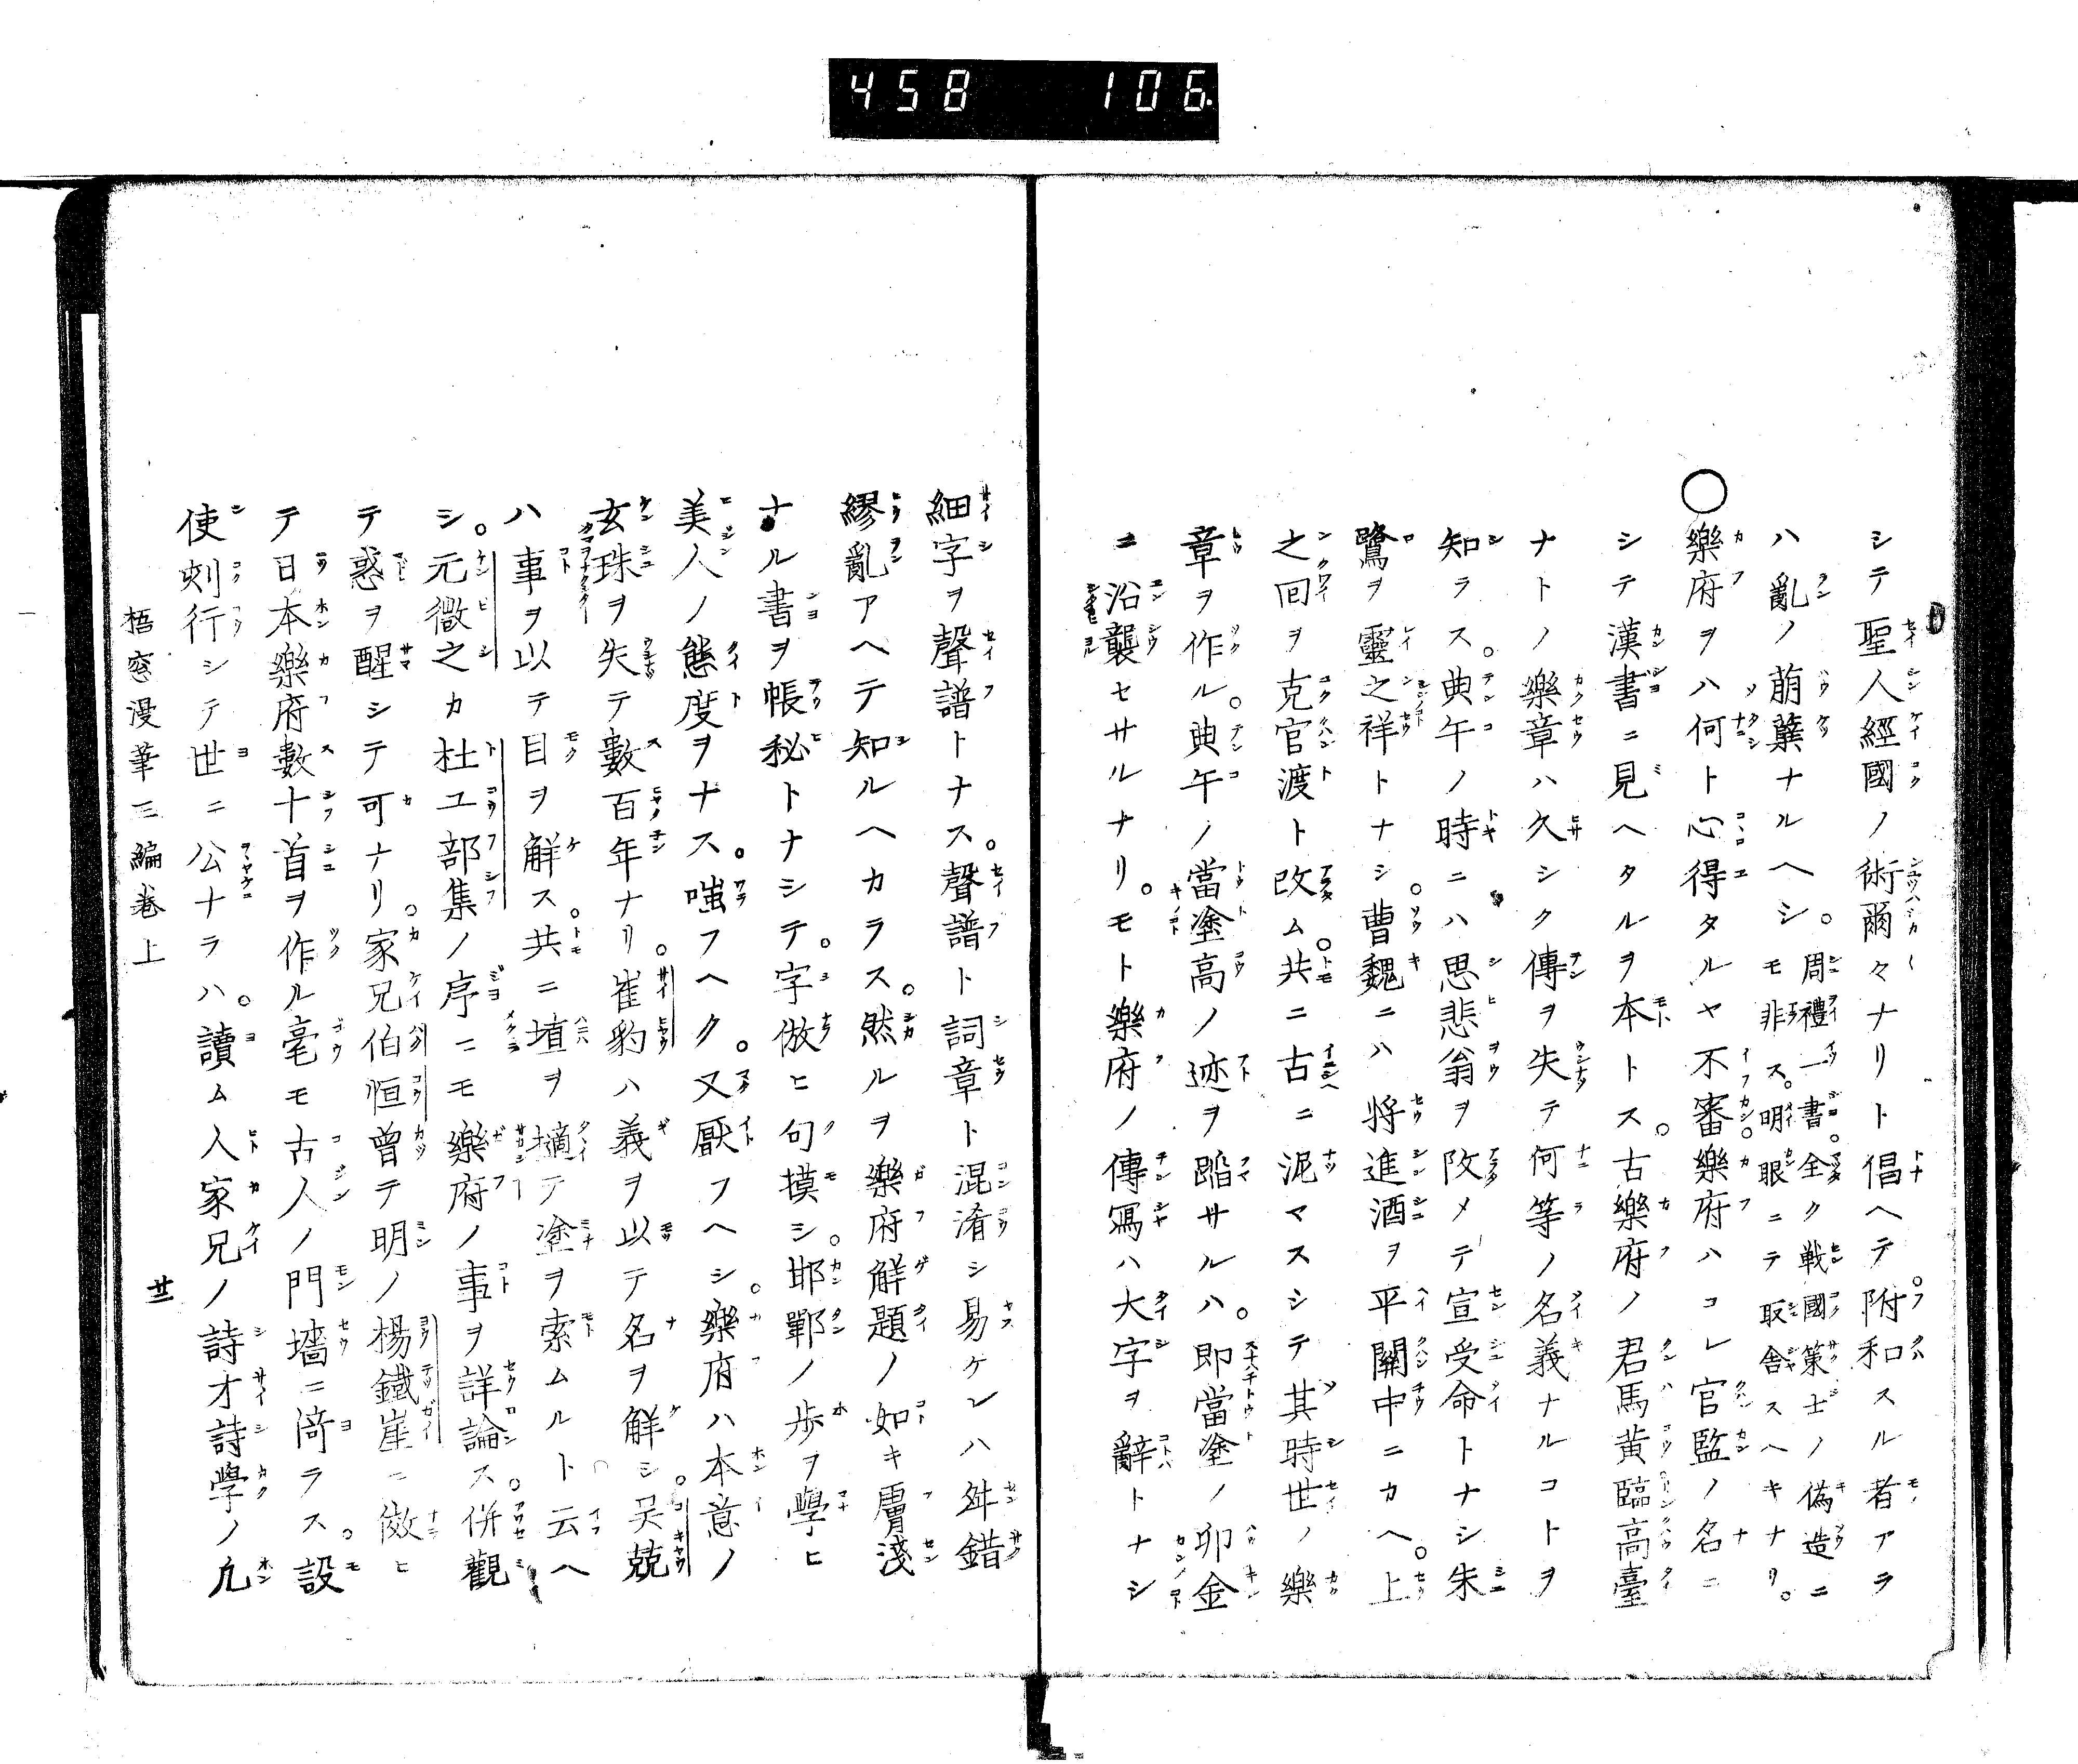 458 106
シテ聖人經國ノ術爾々ナリト倡ヘテ。附和スル者アラ
ハ亂ノ萠蘖ナルヘシ。周禮一書。全ク戦國策士ノ偽造ニ
モ非ス。明眼ニテ取舍スヘキナリ。
○樂府ヲハ何ト心得タルヤ不審。樂府ハコレ官監ノ名ニ
シテ漢書ニ見ヘタルヲ本トス。古樂府ノ君馬黄臨高臺
ナトノ樂章ハ久シク傳ヲ失テ何等ノ名義ナルコトヲ
知ラス。典午ノ時ニハ思悲翁ヲ改メテ宣受命トナシ朱
鷺ヲ靈之祥トナシ。曹魏ニハ将進酒ヲ平關中ニカヘ。上
之回ヲ克官渡ト改ム。共ニ古ニ泥マスシテ其時世ノ樂
章ヲ作ル。典午ノ當塗高ノ迹ヲ蹈サルハ。即當塗ノ卯金
ニ沿襲セサルナリ。モト樂府ノ傳寫ハ大字ヲ辭トナシ
細字ヲ聲譜トナス。聲譜ト詞章ト混淆シ易ケレハ舛錯
繆亂アヘテ知ルヘカラス。然ルヲ樂府解題ノ如キ膚淺
ナル書ヲ帳秘トナシテ。字倣ヒ句摸シ。邯鄲ノ歩ヲ學ヒ
美人ノ態度ヲナス。嗤フヘク。又厭フヘシ。樂府ハ本意ノ
玄珠ヲ失テ數百年ナリ。崔豹ハ義ヲ以テ名ヲ解シ。吴兢
ハ事ヲ以テ目ヲ解ス。共ニ埴ヲ擿テ塗ヲ索ムルト云ヘ
シ。元微之カ杜工部集ノ序ニモ樂府ノ事ヲ詳論ス。併觀
テ惑ヲ醒シテ可ナリ。家兄伯恒曾テ明ノ楊鐵崖ニ倣ヒ
テ日本樂府數十首ヲ作ル毫モ古人ノ門墻ニ倚ラス。設
使刻行シテ世ニ公ナラハ。讀ム人家兄ノ詩才詩學ノ凡
梧窓漫筆三編巻上
廿二